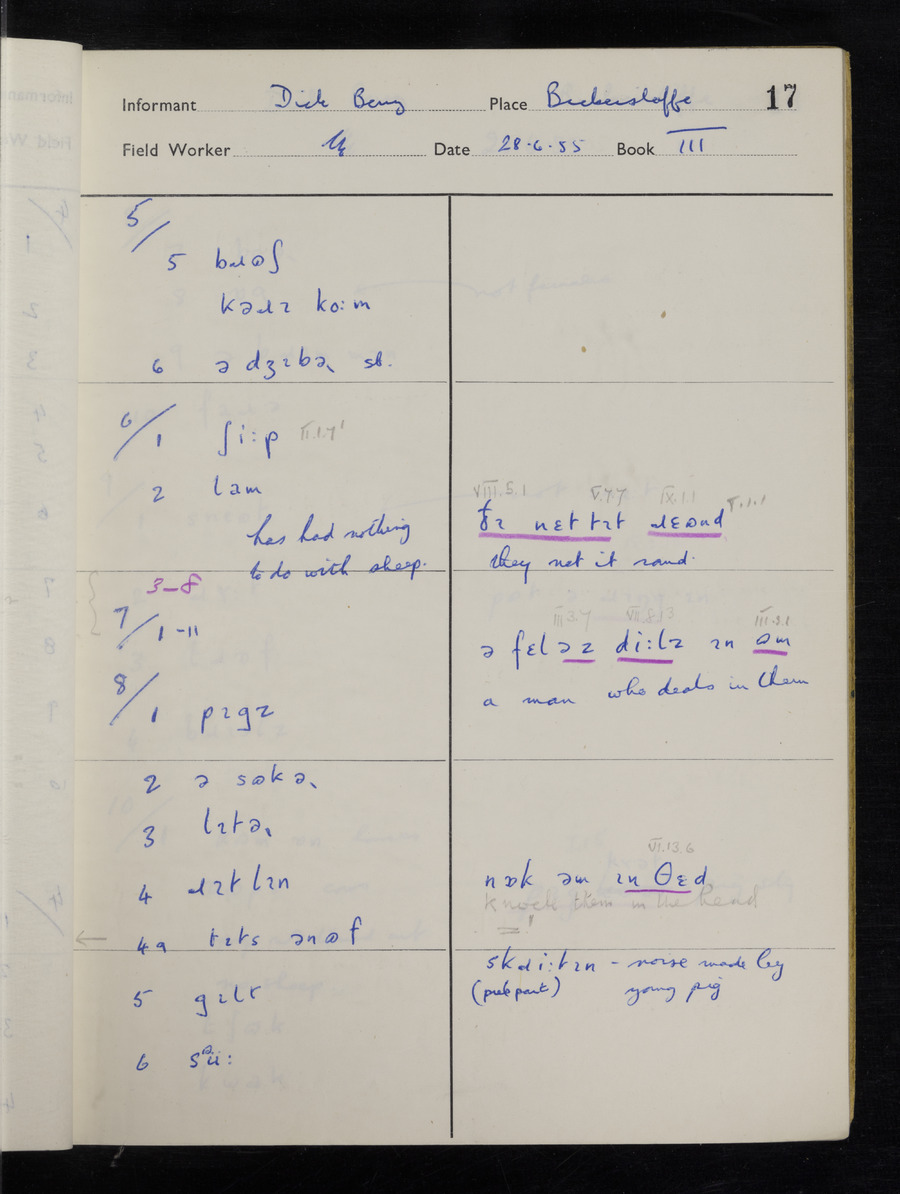 Informant Dick Berry Place Bickerstaffe 17
Field Worker Date 28·6·55 Book III
5/
5 bɹʊʃ
kəɹɪ koːm
6 ə dʒɪbə˞ sb.
6/ 1 ʃiːp II.1.7
2 lam
has had nothing
to do with sheep.
3–8
7/ 1–11
8/ 1 pɪgz
2 ə sʊkə˞
3 lɪtə˞
4 ɹɪtlɪn
4a tɪts ənʊf
5 gɪlt
6 sᶷüː
VIII.5.1 V.7.7 IX.1.1 V.1.1
ðɪ nɛt tɪt ɹɛʊnd
they net it round.
III.3.7 VII.8.13 III.2.1
ə fɛləz diːlz ɪn ʊm
a man who deals in them
VI.13.6
nɒk əm ɪn θɛd
knock them in the head
skɹiːtɪn – noise made by
(pres part) young pig